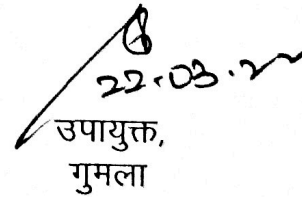 22.03.22
उपायुक्त,
गुमला